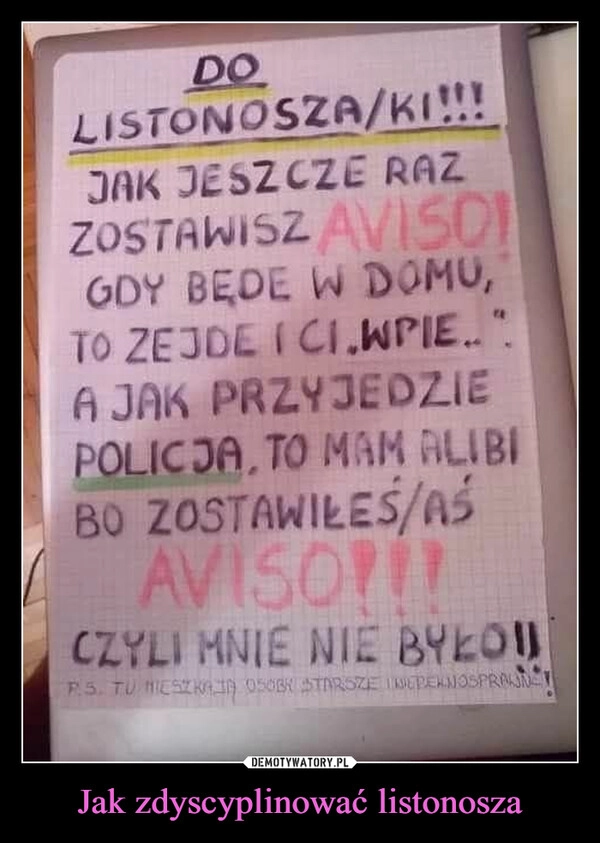 DO
LISTONOSZA/KI!!!
JAK JESZCZE RAZ
ZOSTAWISZ AVISO!
GDY BĘDE W DOMU,
TO ZEJDE I CI „WPIE.."
A JAK PRZYJEDZIE
POLICJA, TO MAM ALIBI
BO ZOSTAWIŁEŚ/AŚ
AVISO!!!
CZYLI MNIE NIE BYŁO!!
P.S. TU MIESZKAJĄ OSOBY STARSZE I NIEPEŁNOSPRAWNE!
DEMOTYWATORY.PL
Jak zdyscyplinować listonosza